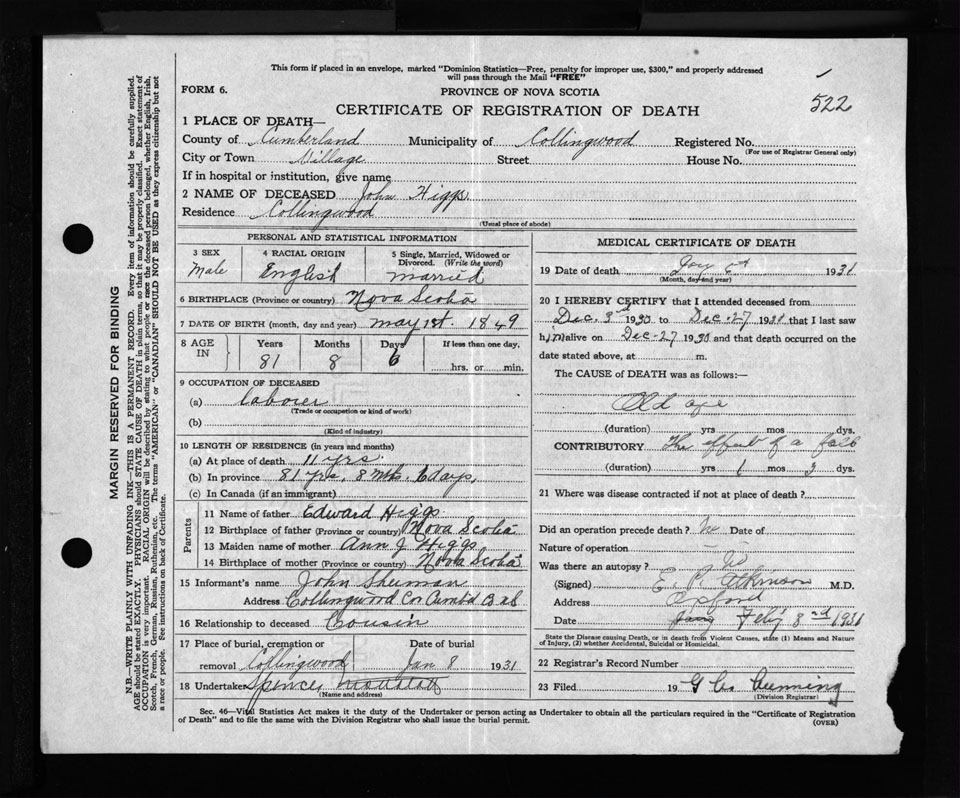 This form if placed in an envelope, marked "Dominion Statistics—Free, penalty for improper use, $300," and properly addressed
will pass through the Mail "FREE"
FORM 6.
PROVINCE OF NOVA SCOTIA
522
CERTIFICATE OF REGISTRATION OF DEATH
1 PLACE OF DEATH—
County of Cumberland Municipality of Collingwood Registered No.
(For use of Registrar General only)
City or Town Village Street House No.
If in hospital or institution, give name
2 NAME OF DECEASED John Higgs
Residence Collingwood
(Usual place of abode)
PERSONAL AND STATISTICAL INFORMATION
3 SEX 4 RACIAL ORIGIN 5 Single, Married, Widowed or
Divorced. (Write the word)
Male English married
6 BIRTHPLACE (Province or country) Nova Scotia
7 DATE OF BIRTH (month, day and year) may 1st. 1849
8 AGE IN Years Months Days If less than one day,
81 8 6 hrs. or min.
9 OCCUPATION OF DECEASED
(a) laborer
(Trade or occupation or kind of work)
(b)
(Kind of industry)
10 LENGTH OF RESIDENCE (in years and months)
(a) At place of death 11 yrs.
(b) In province 81 yrs, 8 mts. 6 days,
(c) In Canada (if an immigrant)
Parents
11 Name of father Edward Higgs
12 Birthplace of father (Province or country) Nova Scotia
13 Maiden name of mother Ann J Higgs
14 Birthplace of mother (Province or country) Nova Scotia
15 Informant's name John Sherman
Address Collingwood Cor Cumb'd
16 Relationship to deceased Cousin
17 Place of burial, cremation or Date of burial
removal Collingwood Jan 8 1931
18 Undertaker Spences
(Name and address)
MEDICAL CERTIFICATE OF DEATH
19 Date of death 1931
(Month, day and year)
20 I HEREBY CERTIFY that I attended deceased from
Dec. 3rd 1930 to Dec-27 1930 that I last saw
him alive on Dec-27 1930 and that death occurred on the
date stated above, at m.
The CAUSE of DEATH was as follows:—
Old age
(duration) yrs mos. dys.
CONTRIBUTORY The effect of a fall
(duration) yrs 1 mos 3 dys.
21 Where was disease contracted if not at place of death?
Did an operation precede death? No Date of
Nature of operation
Was there an autopsy? No
(Signed) E. P. Atkinson M.D.
Address Oxford
Date Feb'y 1931
State the Disease causing Death, or in death from Violent Causes, state (1) Means and Nature
of Injury, (2) whether Accidental, Suicidal or Homicidal.
22 Registrar's Record Number
23 Filed 19
(Division Registrar)
Sec. 46—Vital Statistics Act makes it the duty of the Undertaker or person acting as Undertaker to obtain all the particulars required in the "Certificate of Registration
of Death" and to file the same with the Division Registrar who shall issue the burial permit.
(OVER)
MARGIN RESERVED FOR BINDING
N.B.—WRITE PLAINLY WITH UNFADING INK—THIS IS A PERMANENT RECORD. Every item of information should be carefully supplied.
AGE should be stated EXACTLY. PHYSICIANS should STATE CAUSE OF DEATH in plain terms, so that it may be properly classified. Exact statement of
OCCUPATION is very important. RACIAL ORIGIN will be described by stating to what people or race the deceased person belonged, whether English, Irish,
Scotch, French, German, Russian, Ruthenian, etc. The terms "AMERICAN" or "CANADIAN" SHOULD NOT BE USED as they express citizenship but not
a race or people. See instructions on back of Certificate.